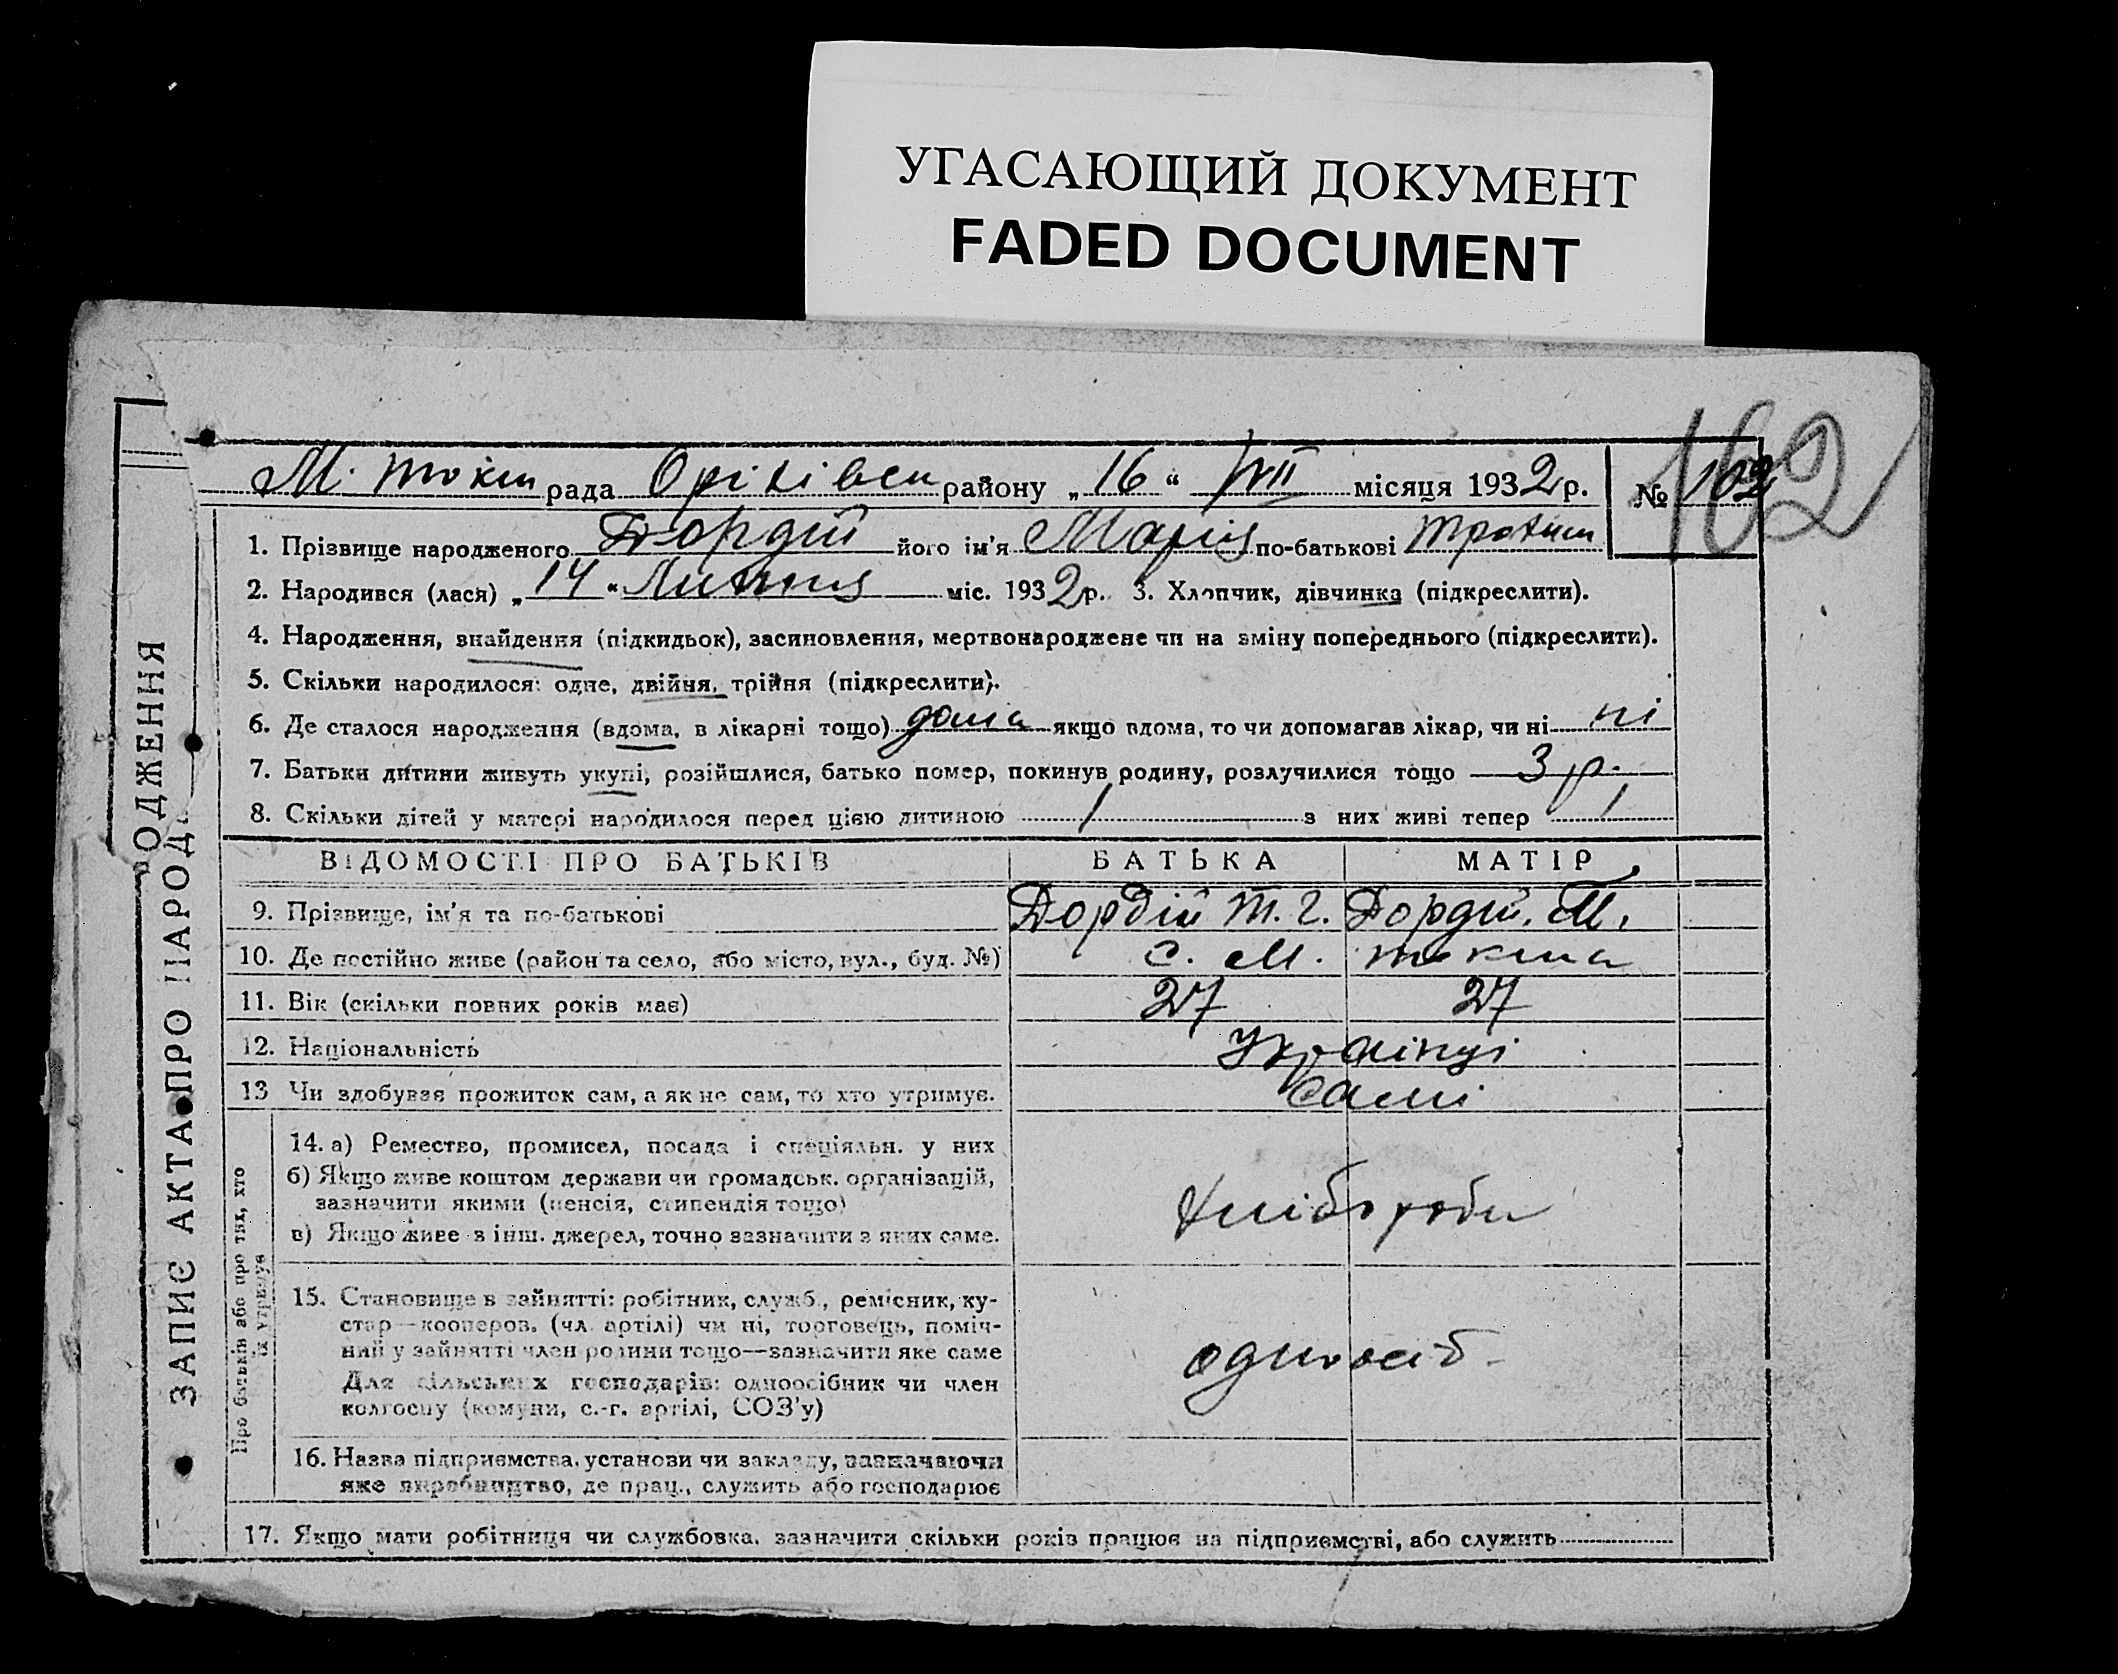 УГАСАЮЩИЙ ДОКУМЕНТ
FADED DOCUMENT
162
М. Токм рада Оріхівськ району „16“ VII місяця 1932 р. № 102
1. Прізвище народженого Дордій його ім'я Марія по-батькові Трохим
2. Народився (лася) „14“ Липня міс. 1932 р. 3. Хлопчик, дівчинка (підкреслити).
4. Народження, знайдення (підкидьок), засиновлення, мертвонароджене чи на зміну попереднього (підкреслити).
5. Скільки народилося: одне, двійня, трійня (підкреслити).
6. Де сталося народження (вдома, в лікарні тощо) дома якщо вдома, то чи допомагав лікар, чи ні ні
7. Батьки дитини живуть укупі, розійшлися, батько помер, покинув родину, розлучилися тощо 3 р.
8. Скільки дітей у матері народилося перед цією дитиною 1 з них живі тепер 1
ВІДОМОСТІ ПРО БАТЬКІВ БАТЬКА МАТІР
9. Прізвище, ім'я та по-батькові Дордій Т. Г. Дордій. М.
10. Де постійно живе (район та село, або місто, вул., буд. №) С. М. Токма
11. Вік (скільки повних років має) 27 27
12. Національність Українці
13 Чи здобуває прожиток сам, а як не сам, то хто утримує. сами
14. а) Ремество, промисел, посада і спеціяльн. у них
б) Якщо живе коштом держави чи громадськ. організацій,
зазначити якими (пенсія, стипендія тощо)
в) Якщо живе з інш. джерел, точно зазначити з яких саме.
Хлібороби
15. Становище в зайнятті: робітник, служб., ремісник, ку-
стар—кооперов. (чл. артілі) чи ні, торговець, поміч-
ний у зайнятті член родини тощо—зазначити яке саме
Для сільських господарів: одноосібник чи член
колгоспу (комуни, с.-г. артілі, СОЗ'у)
одноосіб.
16. Назва підприємства, установи чи закладу, зазначаючи
яке виробництво, де прац., служить або господарює
17. Якщо мати робітниця чи службовка, зазначити скільки років працює на підприємстві, або служить
Про батьків або про тих, хто
їх утримує
ЗАПИС АКТА ПРО НАРОД
ОДЖЕННЯ